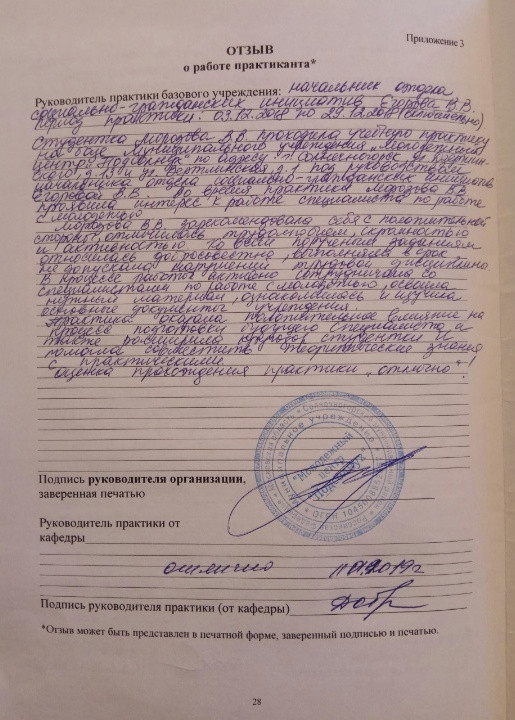 Приложение 3
ОТЗЫВ
о работе практиканта*
Руководитель практики базового учреждения: начальник отдела
социально-гражданских инициатив Егорова В.В.
Период практики: 03.12.2018 по 29.12.2018 (включительно)
Студентка Морозова В.В. проходила учебную практику
на базе Муниципального учреждения "Молодежный
центр "Подсолнух" по адресу г. Солнечногорск,
начальника отдела социально-гражданских инициатив
Егоровой В.В. Во время практики Морозова В.В.
проявила интерес к работе специалиста по работе
с молодежью.
Морозова В.В. зарекомендовала себя с положительной
стороны, отличилась трудолюбием, скромностью
и активностью. Ко всем порученным заданиям
относилась добросовестно, выполняла в срок
не допускала нарушений трудовой дисциплины
В процессе работы активно сотрудничала со
специалистами по работе с молодежью, освоила
нужный материал, ознакомилась и изучила
основные документы учреждения.
Практика оказала положительное влияние на
процесс подготовки будущего специалиста, а
также расширила кругозор студентки и
помогла совместить теоретические знания
с практическими.
Оценка прохождения практики "отлично"!
Подпись руководителя организации,
заверенная печатью
Руководитель практики от
кафедры
отлично
Подпись руководителя практики (от кафедры)
*Отзыв может быть представлен в печатной форме, заверенный подписью и печатью.
28